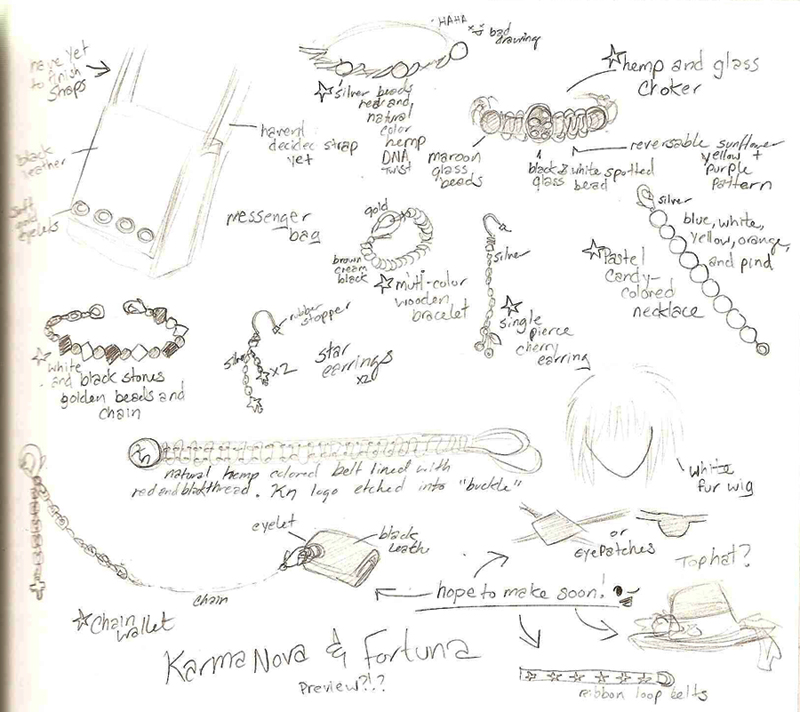 have yet
to finish
straps
black
leather
soft
gold
eyelets
haven't
decided strap
yet
messenger
bag
HAHA
bad
drawing
silver beads
red and
natural
color
hemp
DNA
twist
hemp and glass
choker
maroon
glass
beads
black & white spotted
glass bead
reversable sunflower
yellow +
purple
pattern
gold
brown
cream
black
multi-color
wooden
bracelet
silver
single
pierce
cherry
earring
silver
blue, white,
yellow, orange,
and pink
Pastel
candy-
colored
necklace
white
and black stones
golden beads and
chain
rubber
stopper
silver
x2
star
earrings
x2
natural hemp colored belt lined with
red and black thread. Kn logo etched into "buckle"
white
fur wig
eyelet
black
leather
chain
Chain
wallet
or
eyepatches
Tophat?
hope to make soon!
Karma Nova & Fortuna
Preview?!?
ribbon loop belts